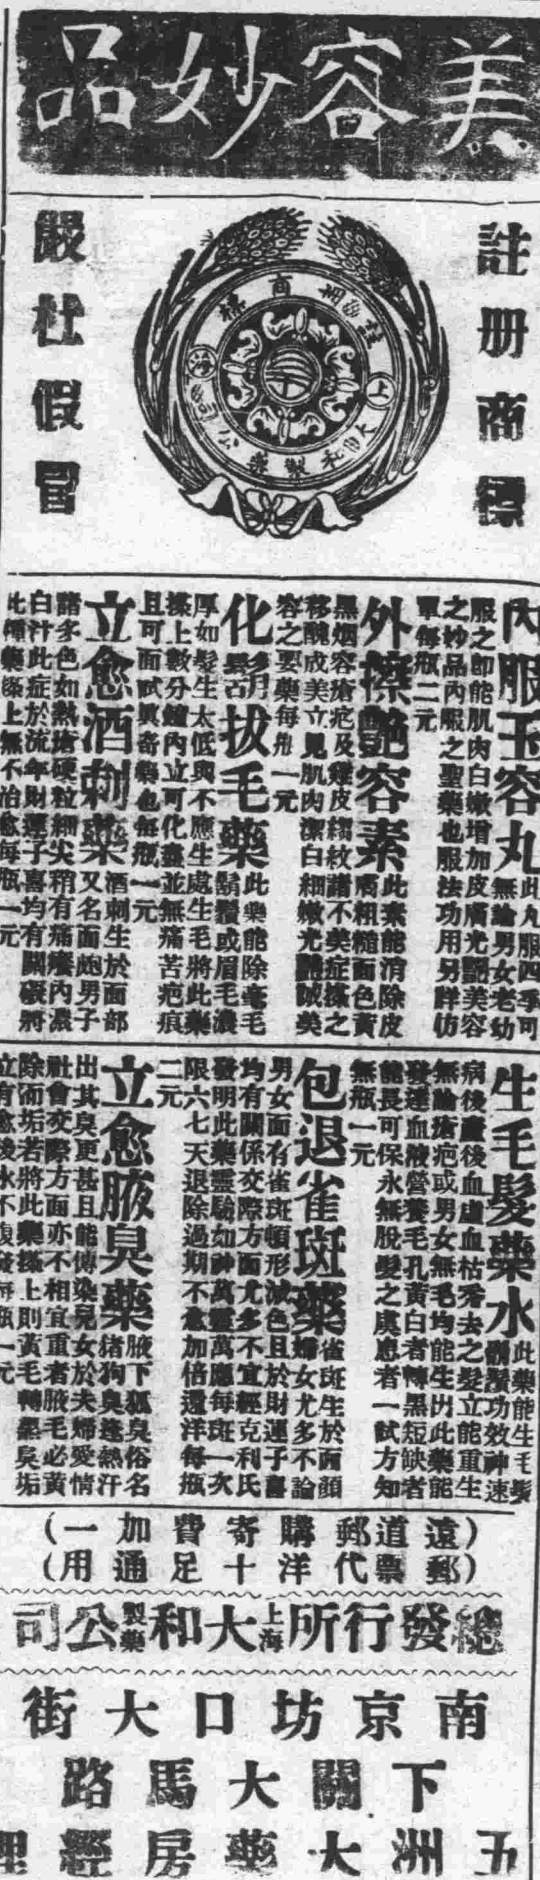 美容妙品
註册商標
嚴杜假冒
註册商標
上海
大和製藥公司
內服玉容丸
此丸服四季可
無論男女老幼
服之卽能肌肉白嫩增加皮膚光艷美容
之妙品內服之聖藥也服法功用另詳仿
單每瓶二元
外擦艷容素
此素能消除皮
膚粗糙面色黃
黑烟容瘡疤及雞皮縐紋諸不美症搽之
移醜成美立見肌肉潔白細嫩光艷誠美
容之要藥每瓶一元
化鬍拔毛藥
此藥能除毫毛
鬍鬚或眉毛濃
厚如髮生太低與不應生處生毛將此藥
搽上數分鐘內立可化盡並無痛苦疤痕
且可面試眞奇藥也每瓶一元
立愈酒刺藥
酒刺生於面部
又名面皰男子
諸多色如熱瘡硬粒細尖稍有痛癢內濃
白汁此症於流年財運子喜均有關礙將
此種藥搽上無不治愈每瓶一元
生毛髮藥水
此藥能生毛髮
鬍鬚功效神速
病後產後血虛血枯秃去之髮立能重生
無論瘡疤或男女無毛均能生出此藥能
發達血液營養毛孔黃白者轉黑短缺者
能長可保永無脫髮之虞患者一試方知
無瓶一元
包退雀斑藥
雀斑生於面顔
婦女尤多不論
男女面有雀斑頓形減色且於財運子喜
均有關係交際方面尤多不宜經克利氏
發明此藥靈驗如神萬靈萬應每斑一次
限六七天退除過期不愈加倍還洋每瓶
二元
立愈腋臭藥
腋下狐臭俗名
猪狗臭逢熱汗
出其臭更甚且能傳染兒女於夫婦愛情
社會交際方面亦不相宜重者腋毛必黃
除而垢若將此藥搽上則黃毛轉黑臭垢
立有愈後永不復發每瓶一元
(遠道郵購寄費加一)
(郵票代洋十足通用)
總發行所上海大和製藥公司
南京坊口大街
下關大馬路
五洲大藥房經理